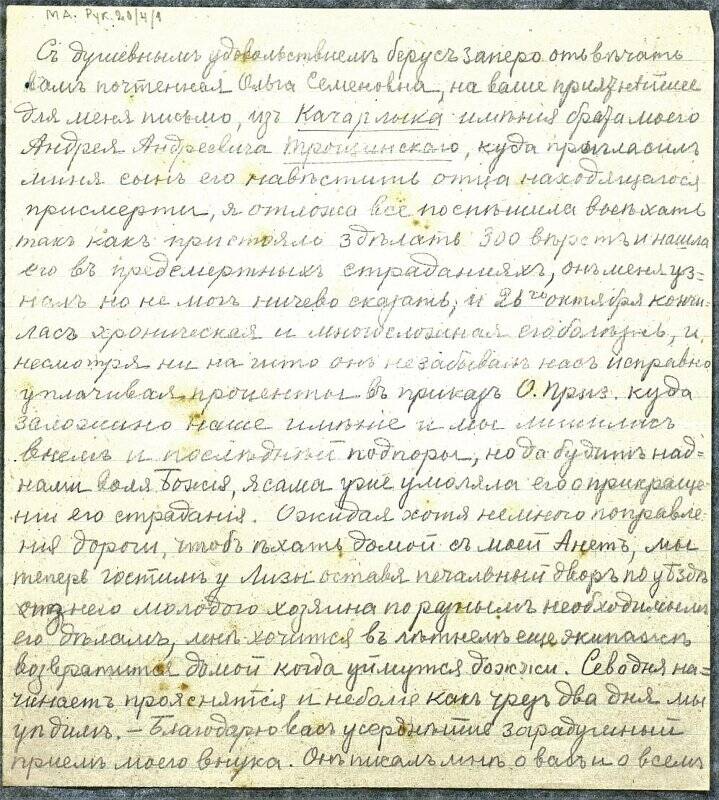 МА. Рук. 20/4/1
Съ душевнымъ удовольствіемъ берусъ заперо отвѣчать
вамъ почтенная Ольга Семеновна, на ваше пріязнѣйшее
для меня письмо, изъ Качарлыка имѣнія брата моего
Андрея Андреевича Трощинскаго, куда пригласилъ
миня сынъ его навѣстить отца находящегося
присмерти, я отложа всё поспѣшила выехать
такъ какъ пристояло здѣлать 300 вѣрстъ и нашла
его въ предсмертныхъ страданіяхъ, онъ меня уз=
налъ но не могъ ничево сказать, и 26го октября кончи=
лась хроническая и многосложная его болѣзнь, и
несмотря ни на чито онъ незабывалъ насъ исправно
уплачивая проценты въ приказъ О. Приз. куда
заложино наше имѣніе и мы лишилась
внемъ и послѣдней подпоры, но да будитъ над=
нами воля Божія, я сама уже умоляла его о прикраще=
ніи его страданія. Ожидая хотя немного поправле=
нія дороги, чтобъ ѣхать домой съ моей Анетъ, мы
теперъ гостимъ у Лизы оставя печальный дворъ по уѣздѣ
изнего молодого хозяина по разнымъ необходимымъ
его дѣламъ, мнѣ хочится въ лѣтнемъ еще экипажѣ
возвратится домой когда уймутся дожжи. Севодня на=
чинаетъ прояснятся и неболѣе какъ чрезъ два дня мы
уѣдимъ. — Благодарю васъ усерднѣйше зарадушный
пріемъ моего внука. Онъ писалъ мнѣ о васъ и о всемъ